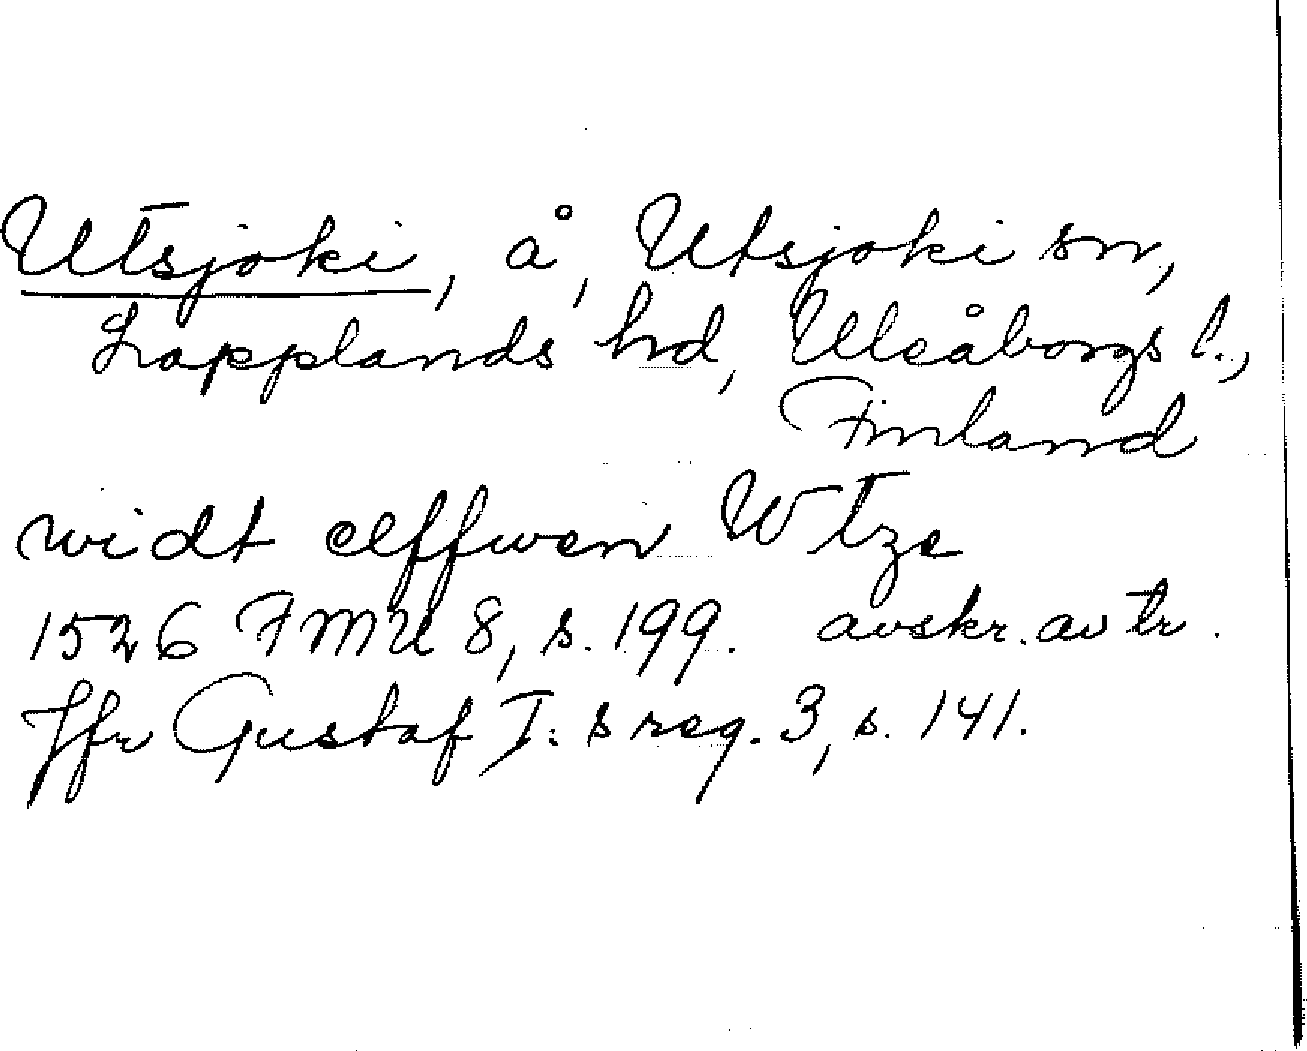 Utsjoki, å, Utsjoki sn,
Lapplands hd, Uleåborgs l.,
Finland
widt elffwen Wtze
1526 FMU 8, s. 199. avskr. av tr.
Jfr Gustaf I: s reg. 3, s. 141.